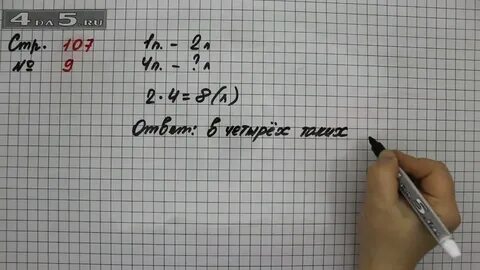 4DA5.RU
Стр. 107
№ 9
1п. - 2л
4п. - ? л
2 · 4 = 8 (л)
Ответ: в четырёх таких